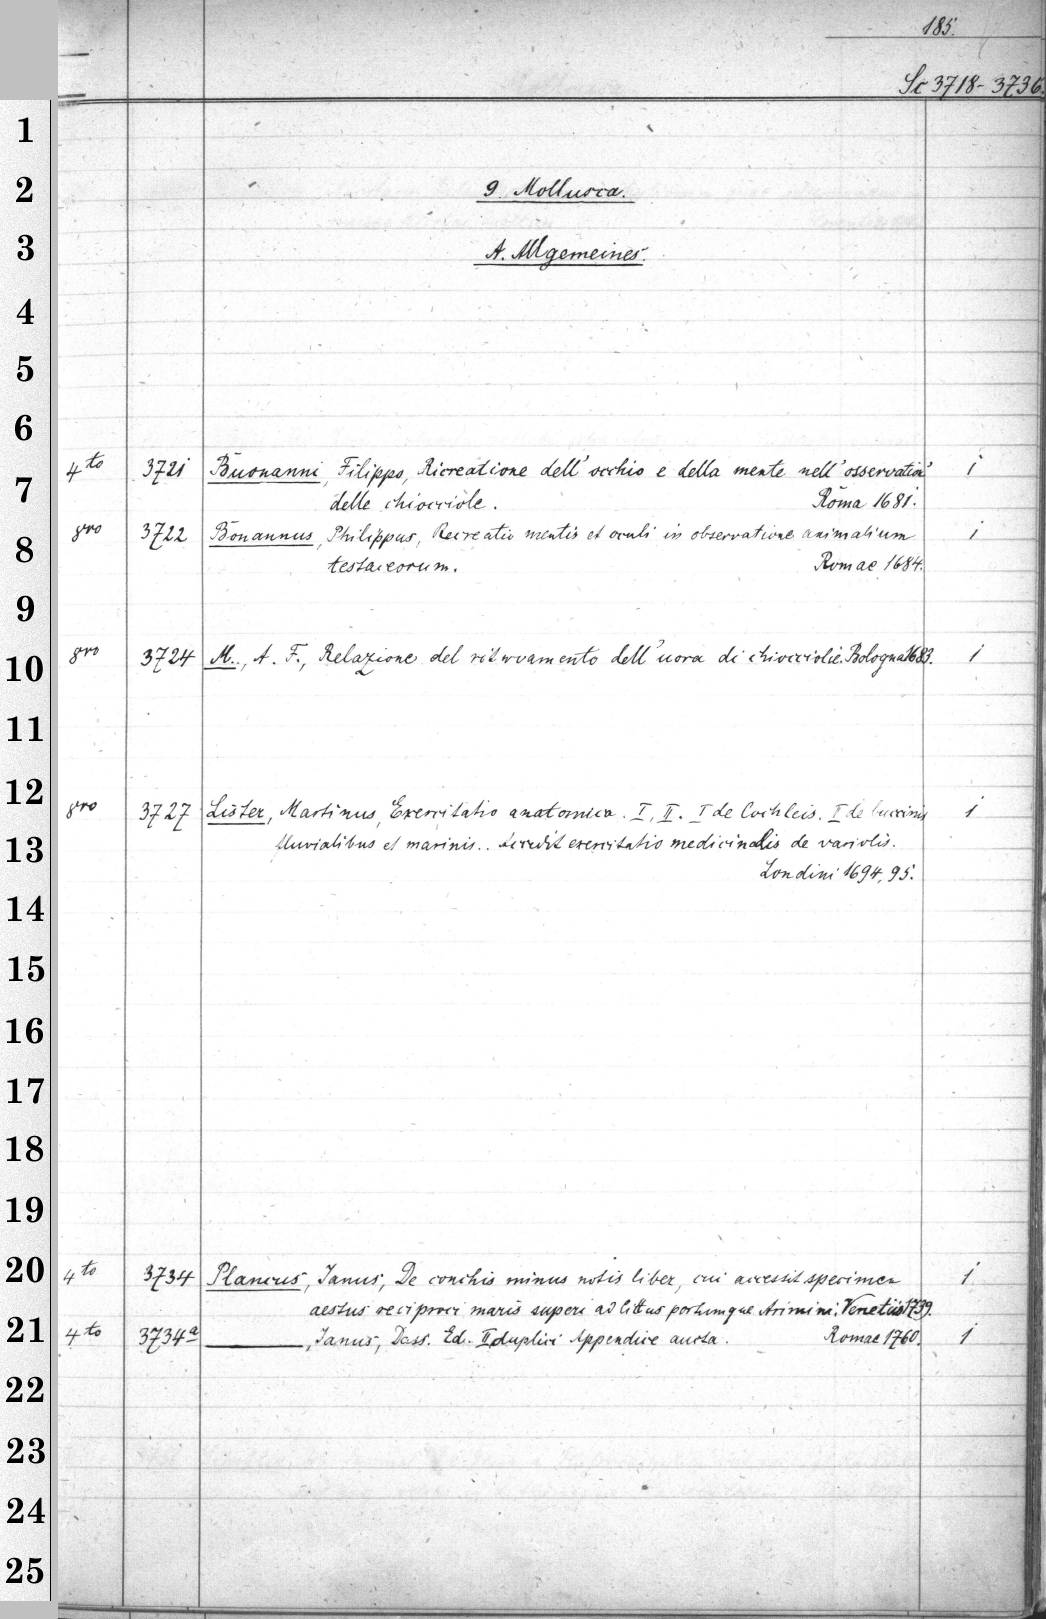 185.
Sc 3718-3736.
9. Mollusca.
A. Allgemeines.
4to 3721 Buonanni, Filippo, Ricreatione dell' occhio e della mente nell' osservation' 1
delle chiocciole. Roma 1681.
8vo 3722 Bonannus, Philippus, Recreatio mentis et oculi in observatione animalium 1
testaceorum. Romae 1684.
8vo 3724 M., A. F., Relazione del ritrovamento dell' uova di chiocciole. Bologna 1683. 1
8vo 3727 Lister, Martinus, Exercitatio anatomica. I, II. I de Cochleis. II de buccinis 1
fluvialibus et marinis.. Accedit exercitatio medicinalis de variolis.
Londini 1694, 95.
4to 3734 Plancus, Janus, De conchis minus notis liber, cui accessit specimen 1
aestus reciproci maris superi ad littus portumque Arimini. Venetiis 1739.
4to 3734a ———, Janus, Dass. Ed. II duplici Appendice aucta. Romae 1760. 1
1
2
3
4
5
6
7
8
9
10
11
12
13
14
15
16
17
18
19
20
21
22
23
24
25